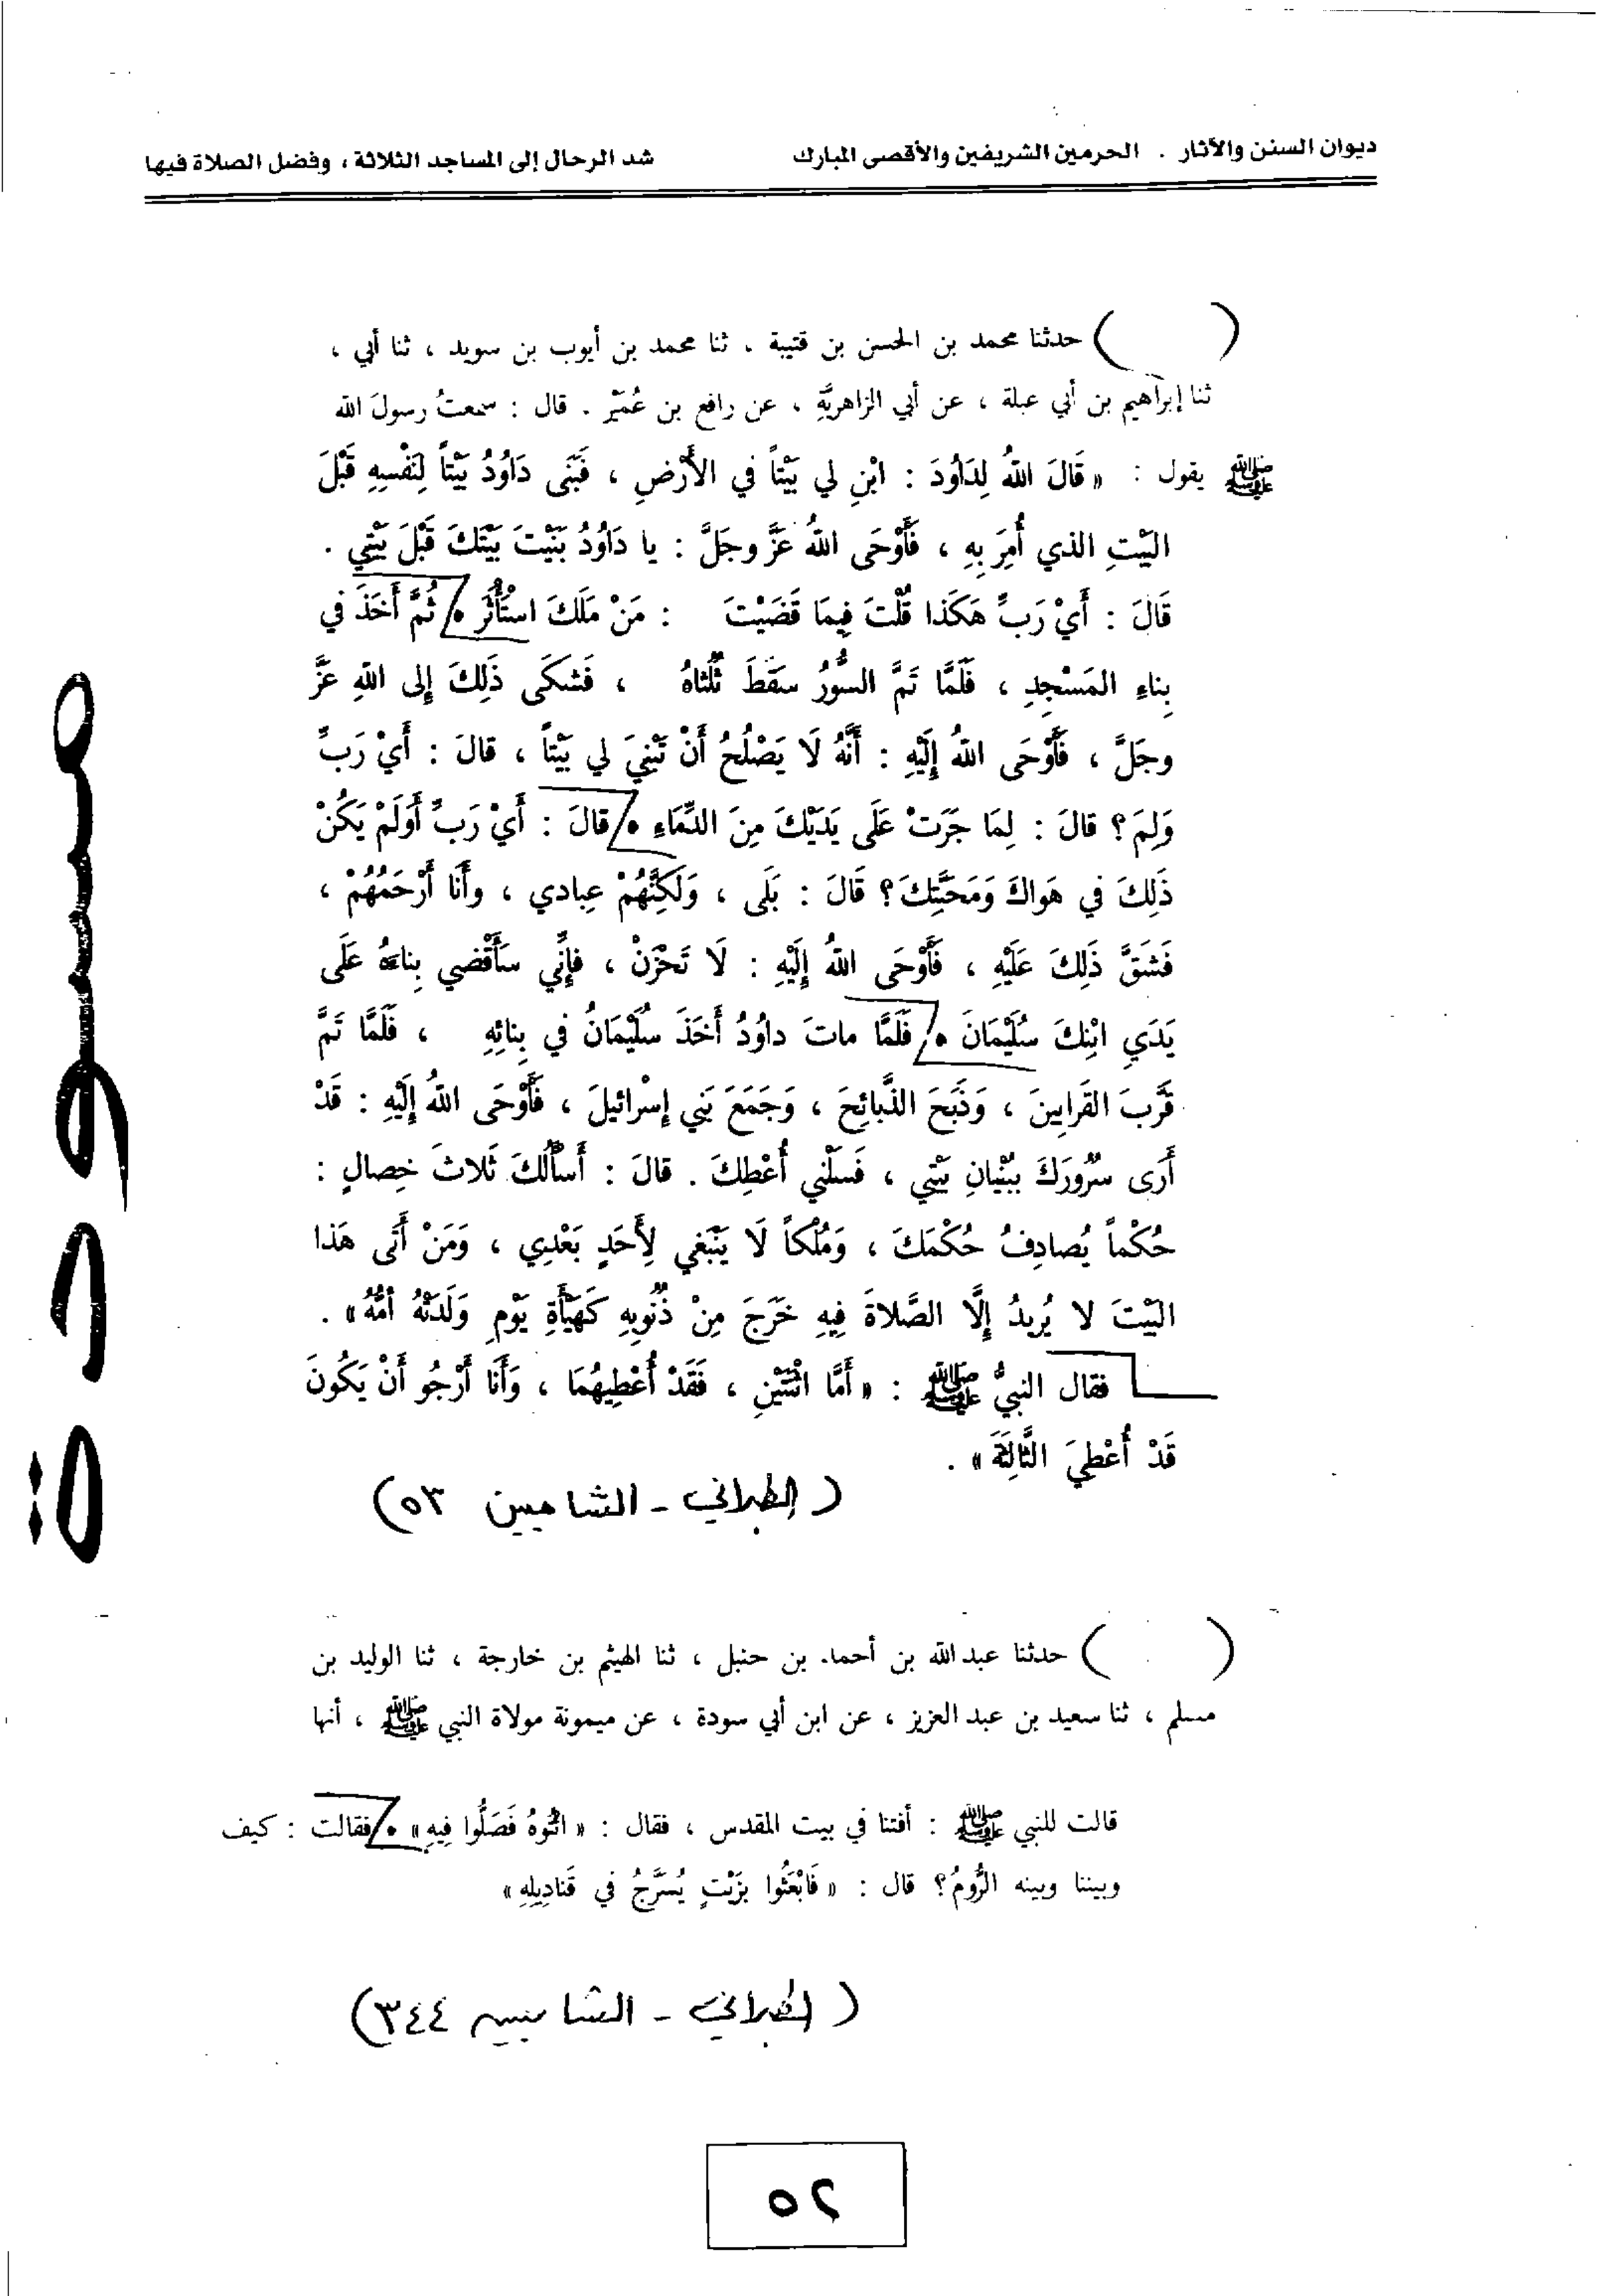 ديوان السنن والآثار . الحرمين الشريفين والأقصى المبارك شد الرحال إلى المساجد الثلاثة ، وفضل الصلاة فيها
( ) حدثنا محمد بن الحسن بن قتيبة ، ثنا محمد بن أيوب بن سويد ، ثنا أبي ،
ثنا إبراهيم بن أبي عبلة ، عن أبي الزاهريَّةِ ، عن رافع بن عُمَيْر . قال : سمعتُ رسولَ الله
ﷺ يقول : « قَالَ اللهُ لِدَاوُدَ : ابْنِ لي بَيْتاً في الأَرْضِ ، فَبَنَى دَاوُدُ بَيْتاً لِنَفْسِهِ قَبْلَ
البَيْتِ الذي أُمِرَ بِهِ ، فَأَوْحَى اللهُ عَزَّ وجَلَّ : يا دَاوُدُ بَنَيْتَ بَيْتَكَ قَبْلَ بَيْتِي .
قَالَ : أَيْ رَبِّ هَكَذا قُلْتَ فِيمَا قَضَيْتَ : مَنْ مَلَكَ اسْتَأْثَرَ ٥/ ثُمَّ أَخَذَ في
بِناءِ المَسْجِدِ ، فَلَمَّا تَمَّ السُّورُ سَقَطَ ثُلُثاهُ ، فَشَكَى ذَلِكَ إِلى اللهِ عَزَّ
وجَلَّ ، فَأَوْحَى اللهُ إِلَيْهِ : أَنَّهُ لَا يَصْلُحُ أَنْ تَبْنِيَ لي بَيْتاً ، قالَ : أَيْ رَبِّ
وَلِمَ ؟ قالَ : لِمَا جَرَتْ عَلَى يَدَيْكَ مِنَ الدِّمَاءِ ٥/ قالَ : أَيْ رَبِّ أَوَلَمْ يَكُنْ
ذَلِكَ في هَواكَ وَمَحَبَّتِكَ ؟ قَالَ : بَلَى ، وَلَكِنَّهُمْ عِبادي ، وأَنَا أَرْحَمُهُمْ ،
فَشَقَّ ذَلِكَ عَلَيْهِ ، فَأَوْحَى اللهُ إِلَيْهِ : لَا تَحْزَنْ ، فإِنِّي سَأَقْضي بِناءَهُ عَلَى
يَدَيِ ابْنِكَ سُلَيْمَانَ ٥/ فَلَمَّا ماتَ داوُدُ أَخَذَ سُلَيْمَانُ في بِنائِهِ ، فَلَمَّا تَمَّ
قَرَّبَ القَرابِينَ ، وَذَبَحَ الذَّبائِحَ ، وَجَمَعَ بَني إِسْرائيلَ ، فَأَوْحَى اللهُ إِلَيْهِ : قَدْ
أَرَى سُرُورَكَ بِبُنْيانِ بَيْتي ، فَسَلْني أُعْطِكَ . قالَ : أَسأَلُكَ ثَلاثَ خِصالٍ :
حُكْماً يُصادِفُ حُكْمَكَ ، وَمُلْكاً لَا يَنْبَغي لِأَحَدٍ بَعْدِي ، وَمَنْ أَتَى هَذا
البَيْتَ لا يُرِيدُ إِلَّا الصَّلاةَ فِيهِ خَرَجَ مِنْ ذُنُوبِهِ كَهَيْأَةِ يَوْمِ وَلَدَتْهُ أُمُّهُ» .
فقال النبيُّ ﷺ : « أَمَّا اثْنَتَيْنِ ، فَقَدْ أُعْطِيهُمَا ، وَأَنَا أَرْجُو أَنْ يَكُونَ
قَدْ أُعْطِيَ الثَّالِثَةَ » .
( الطبراني - الشاميين ٥٣)
( ) حدثنا عبد الله بن أحمد. بن حنبل ، ثنا الهيثم بن خارجة ، ثنا الوليد بن
مسلم ، ثنا سعيد بن عبد العزيز ، عن ابن أبي سودة ، عن ميمونة مولاة النبي ﷺ ، أنها
قالت للنبي ﷺ : أفتنا في بيت المقدس ، فقال : « ائْتُوهُ فَصَلُّوا فِيهِ» ٥/ فقالت : كيف
وبيننا وبينه الرُّومُ؟ قال : « فَابْعَثُوا بِزَيْتٍ يُسَرَّجُ في قَنادِيلِهِ»
( الطبراني - الشاميين ٣٤٤)
٥٢
مسودة